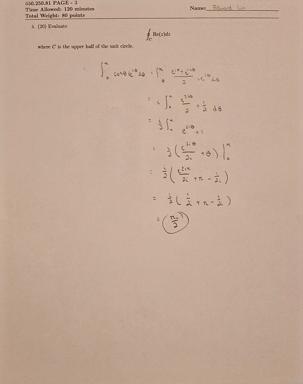 650.250.81 PAGE - 3
Time Allowed: 120 minutes
Total Weight: 80 points
Name: Edward Lin
3. (20) Evaluate
∮_C Re(z)dz
where C is the upper half of the unit circle.
∫_0^π cosθ i e^{iθ} dθ = ∫_0^π (e^{iθ} + e^{-iθ})/2 · i e^{iθ} dθ
= i ∫_0^π e^{2iθ}/2 + 1/2 dθ
= i/2 ∫_0^π e^{2iθ} + 1
= i/2 ( e^{2iθ}/2i + θ ) |_0^π
= i/2 ( e^{2iπ}/2i + π - 1/2i )
= i/2 ( 1/2i + π - 1/2i )
= πi/2